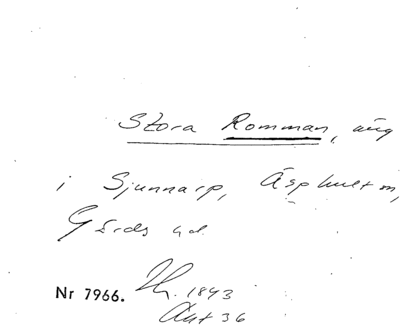 Stora Romman, äng
i Sjunnarp, Äsphult sn,
Gärds hd.
Nr 7966. 1843
Akt 36